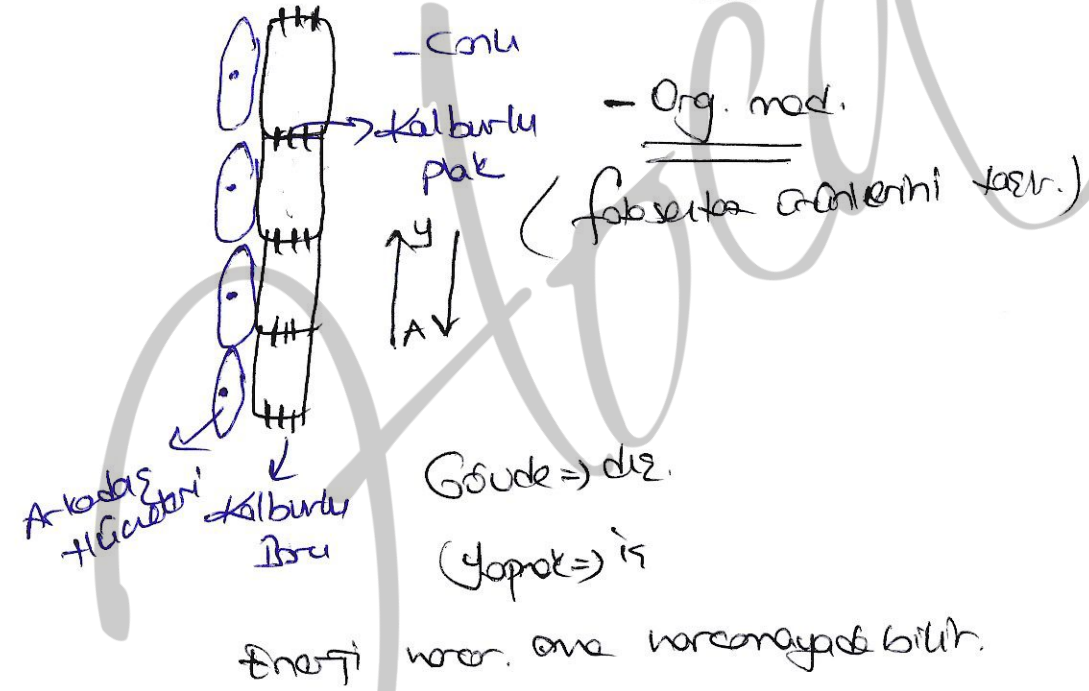 - Canlı
→ Kalburlu
plak
- Org. mad.
(fotosentez ürünlerini taşır.)
Y
A
Arkadaş
Hücreleri
Kalburlu
Boru
Gövde => dış.
(Yaprak => iç
Enerji harcar. ama harcamayadabilir.